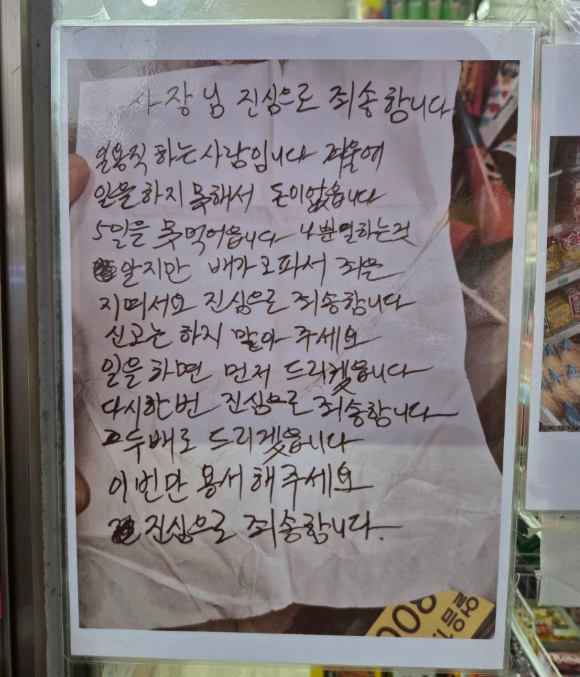 사장님 진심으로 죄송합니다
일용직 하는 사람입니다 겨울에
일을 하지 못해서 돈이 없읍니다
5일을 못먹어읍니다 나뿐일하는것
알지만 배가 고파서 죄를
지며서요 진심으로 죄송합니다
신고는 하지 말아 주세요
일을 하면 먼저 드리겠읍니다
다시한번 진심으로 죄송합니다
두배로 드리겠읍니다
이번만 용서해주세요
진심으로 죄송합니다.